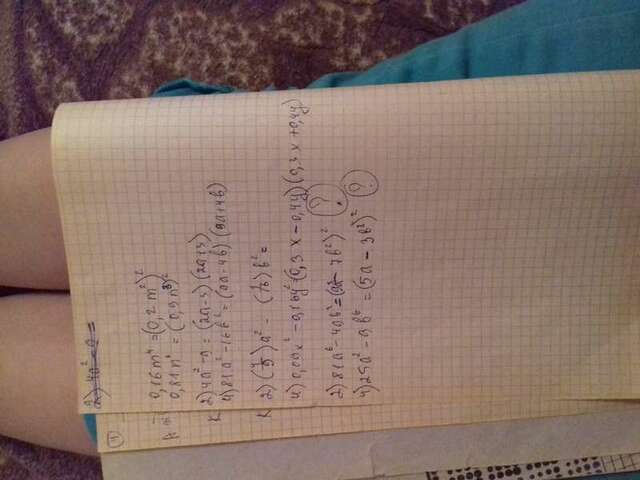 2) 4a² - 9 =
4
0,16m⁴ = (0,2m²)²
0,81n⁶ = (0,9n³)²
2) 4a² - 9 = (2a-3)(2a+3)
4) 81a² - 16b² = (9a-4b)(9a+4b)
2) (4/9)a² - (1/16)b² =
4) 0,09x² - 0,16y² = (0,3x - 0,4y)(0,3x + 0,4y)
4) 25a² - 9b⁶ = (5a - 3b³)² ?